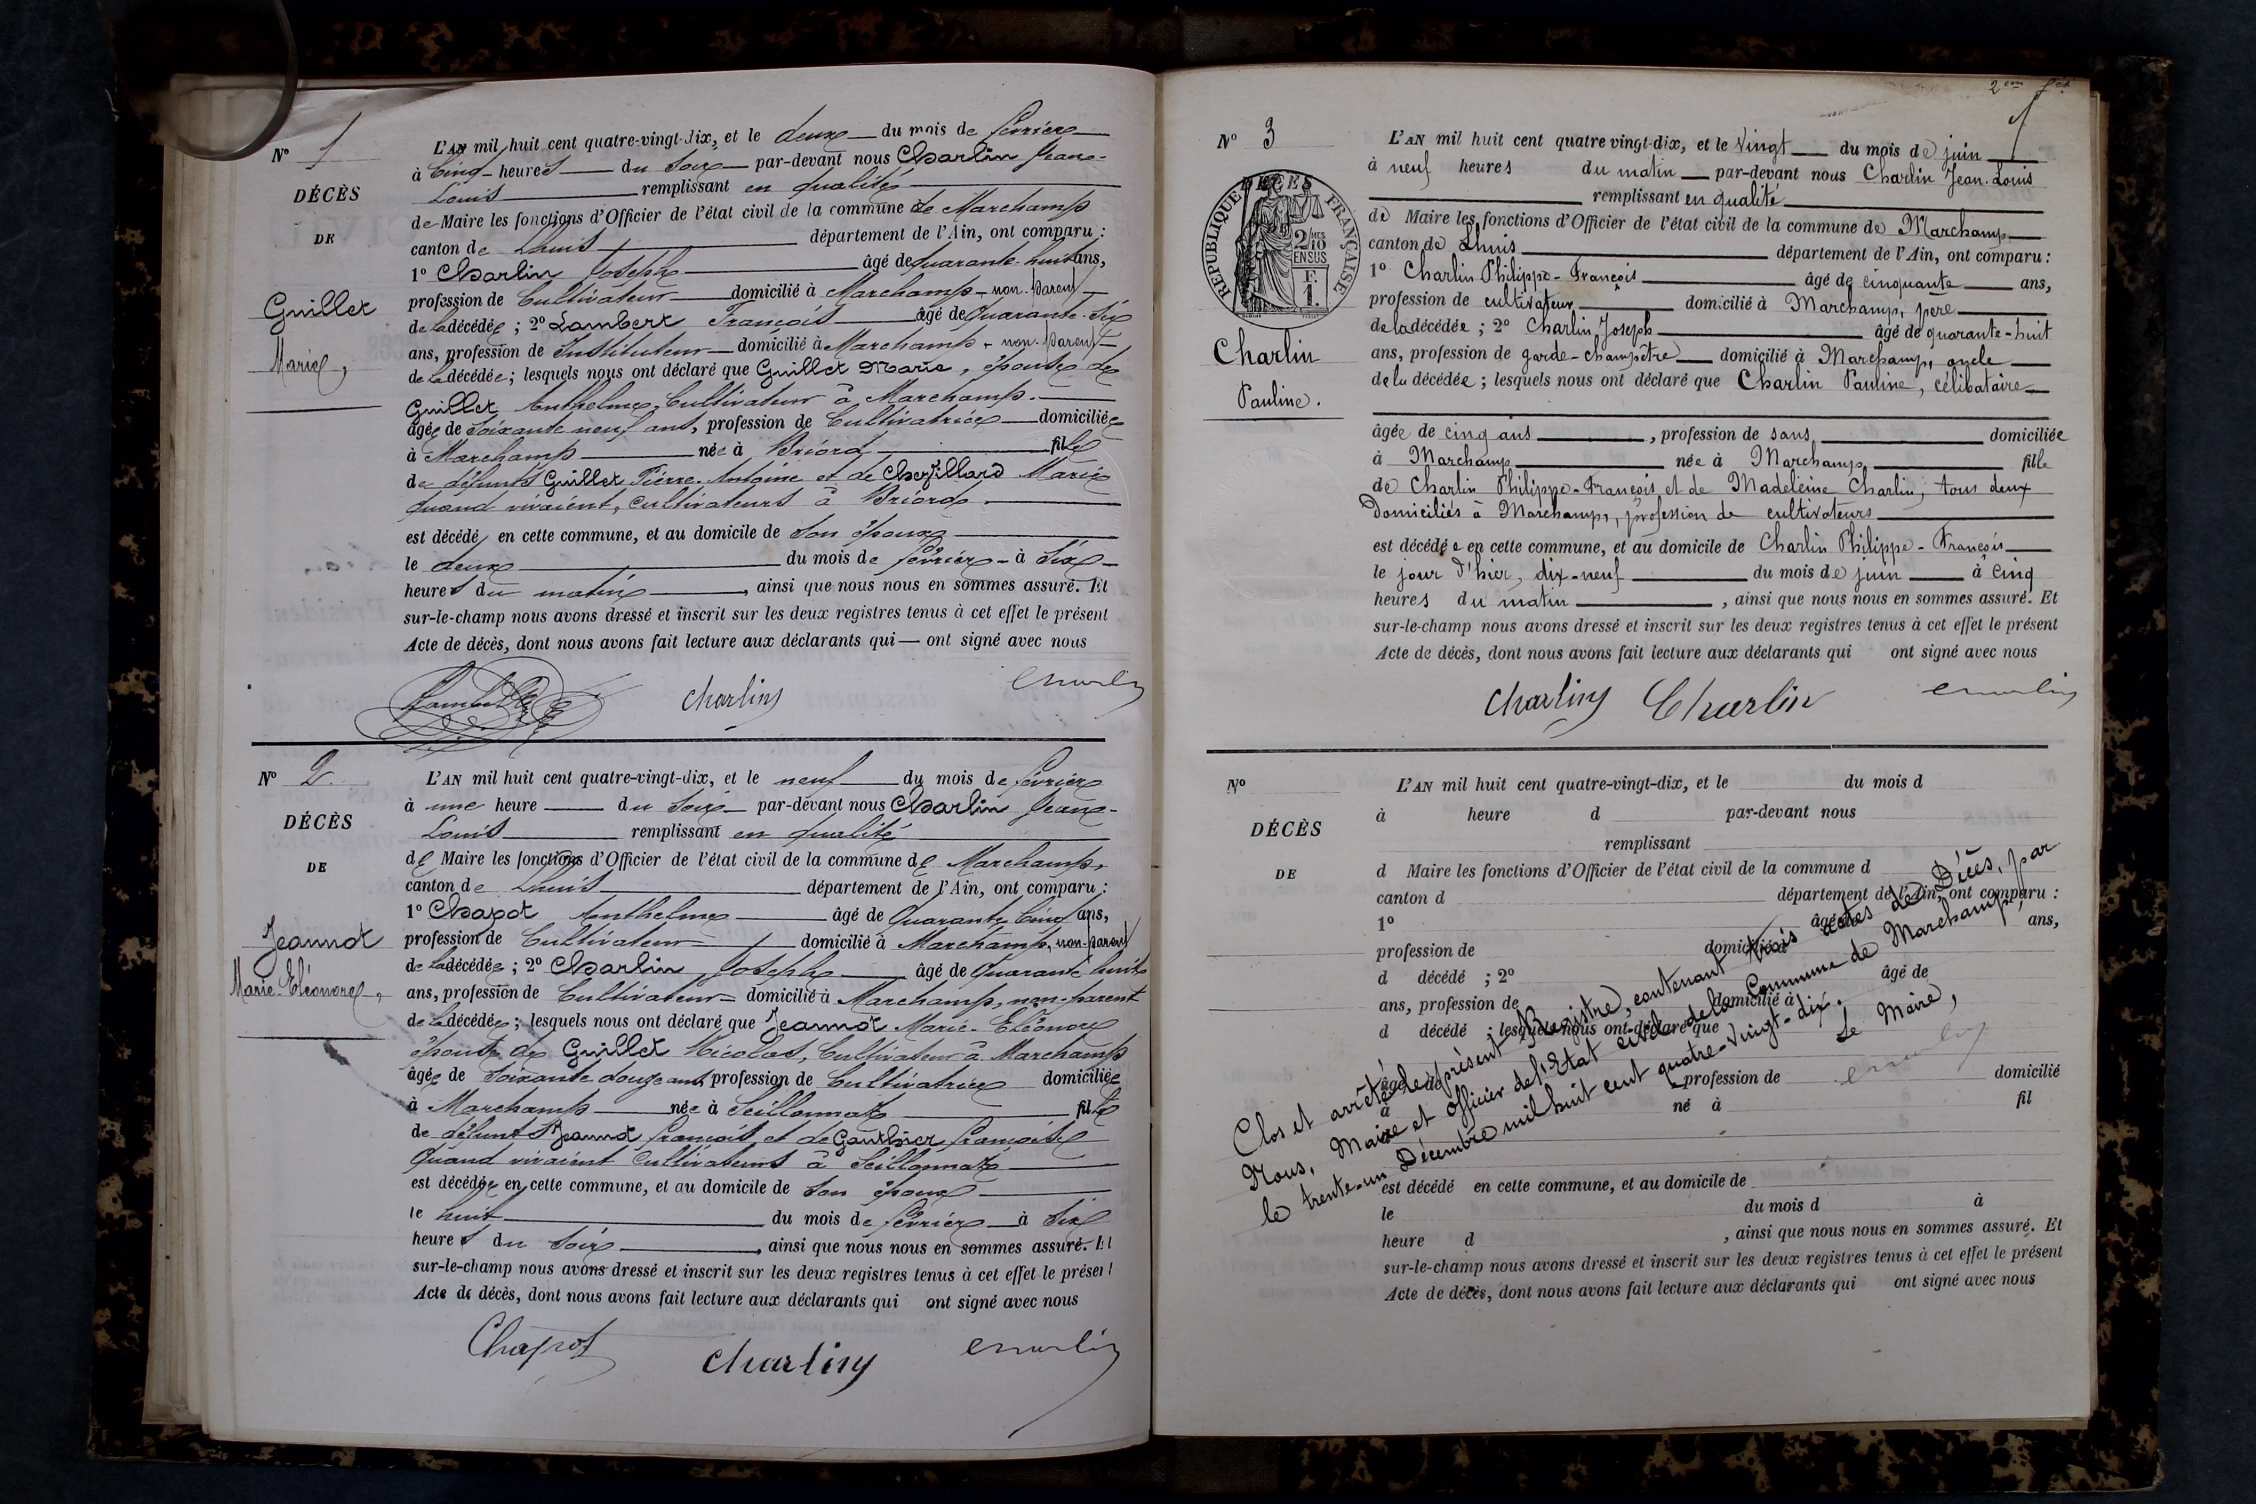 Nº 1
DÉCÈS
DE
Guillet
Marie,
L'AN mil huit cent quatre-vingt-dix, et le deux du mois de février
à Cinq heures du soir par-devant nous Charlin Jean-
Louis remplissant en qualité
de Maire les fonctions d'Officier de l'état civil de la commune de Marchamp
canton de Lhuis département de l'Ain, ont comparu :
1º Charlin Joseph âgé de quarante-huit ans,
profession de Cultivateur domicilié à Marchamp - non-parent
de la décédée ; 2º Lambert François âgé de Quarante-six
ans, profession de Instituteur domicilié à Marchamp - non-parent
de la décédée ; lesquels nous ont déclaré que Guillet Marie, épouse de
Guillet Anthelme, Cultivateur à Marchamp.
âgée de soixante neuf ans, profession de Cultivatrice domiciliée
à Marchamp née à Briord fille
de défunts Guillet Pierre-Antoine et de Chevillard Marie
quand vivaient, cultivateurs à Briord.
est décédé en cette commune, et au domicile de son époux
le deux du mois de février - à six
heures du matin, ainsi que nous nous en sommes assuré. Et
sur-le-champ nous avons dressé et inscrit sur les deux registres tenus à cet effet le présent
Acte de décès, dont nous avons fait lecture aux déclarants qui — ont signé avec nous
Lambert Charlin Charlin
Nº 2
DÉCÈS
DE
Jeannot
Marie-Eléonore,
L'AN mil huit cent quatre-vingt-dix, et le neuf du mois de février
à une heure du soir par-devant nous Charlin Jean-
Louis remplissant en qualité
de Maire les fonctions d'Officier de l'état civil de la commune de Marchamp,
canton de Lhuis département de l'Ain, ont comparu :
1º Chapot Anthelme âgé de Quarante Cinq ans,
profession de Cultivateur domicilié à Marchamp, non-parent
de la décédée ; 2º Charlin Joseph âgé de Quarante huit
ans, profession de Cultivateur domicilié à Marchamp, non-parent
de la décédée ; lesquels nous ont déclaré que Jeannot Marie-Eléonore
épouse de Guillet Nicolas, Cultivateur à Marchamp
âgée de Soixante douze ans, profession de Cultivatrice domiciliée
à Marchamp née à Seillonnaz fille
de défunts Jeannot François et de Gauthier Françoise
Quand vivaient Cultivateurs à Seillonnaz
est décédée en cette commune, et au domicile de son époux
le huit du mois de février à six
heures du soir, ainsi que nous nous en sommes assuré. Et
sur-le-champ nous avons dressé et inscrit sur les deux registres tenus à cet effet le présent
Acte de décès, dont nous avons fait lecture aux déclarants qui ont signé avec nous
Chapot Charlin Charlin
Nº 3
DÉCÈS
RÉPUBLIQUE FRANÇAISE
2/10 EN SUS
F.
1.
Charlin
Pauline.
L'AN mil huit cent quatre vingt-dix, et le vingt du mois de juin
à neuf heures du matin par-devant nous Charlin Jean-Louis
remplissant en qualité
de Maire les fonctions d'Officier de l'état civil de la commune de Marchamp
canton de Lhuis département de l'Ain, ont comparu :
1º Charlin Philippe-François âgé de cinquante ans,
profession de cultivateur domicilié à Marchamp, père
de la décédée ; 2º Charlin Joseph âgé de quarante-huit
ans, profession de garde-champêtre domicilié à Marchamp, oncle
de la décédée ; lesquels nous ont déclaré que Charlin Pauline, célibataire
âgée de cinq ans, profession de sans domiciliée
à Marchamp née à Marchamp fille
de Charlin Philippe-François et de Madeleine Charlin, tous deux
Domiciliés à Marchamp, profession de cultivateurs
est décédée en cette commune, et au domicile de Charlin Philippe-François
le jour d'hier, dix-neuf du mois de juin à cinq
heures du matin, ainsi que nous nous en sommes assuré. Et
sur-le-champ nous avons dressé et inscrit sur les deux registres tenus à cet effet le présent
Acte de décès, dont nous avons fait lecture aux déclarants qui ont signé avec nous
Charlin Charlin Charlin
Nº
DÉCÈS
DE
L'AN mil huit cent quatre-vingt-dix, et le du mois d
à heure d par-devant nous
remplissant
d Maire les fonctions d'Officier de l'état civil de la commune d
canton d département de l'Ain, ont comparu :
1º âgé de ans,
profession de domicilié à
d décédé ; 2º âgé de
ans, profession de domicilié à
d décédé ; lesquels nous ont déclaré que
âgé de profession de domicilié
à né à fil
est décédé en cette commune, et au domicile de
le du mois d à
heure d , ainsi que nous nous en sommes assuré. Et
sur-le-champ nous avons dressé et inscrit sur les deux registres tenus à cet effet le présent
Acte de décès, dont nous avons fait lecture aux déclarants qui ont signé avec nous
Clos et arrêté le présent Registre, contenant trois actes de Décès, par
Nous, Maire et Officier de l'Etat civil de la Commune de Marchamp,
le trente-un Décembre mil huit cent quatre-vingt-dix.
Le Maire,
Charlin